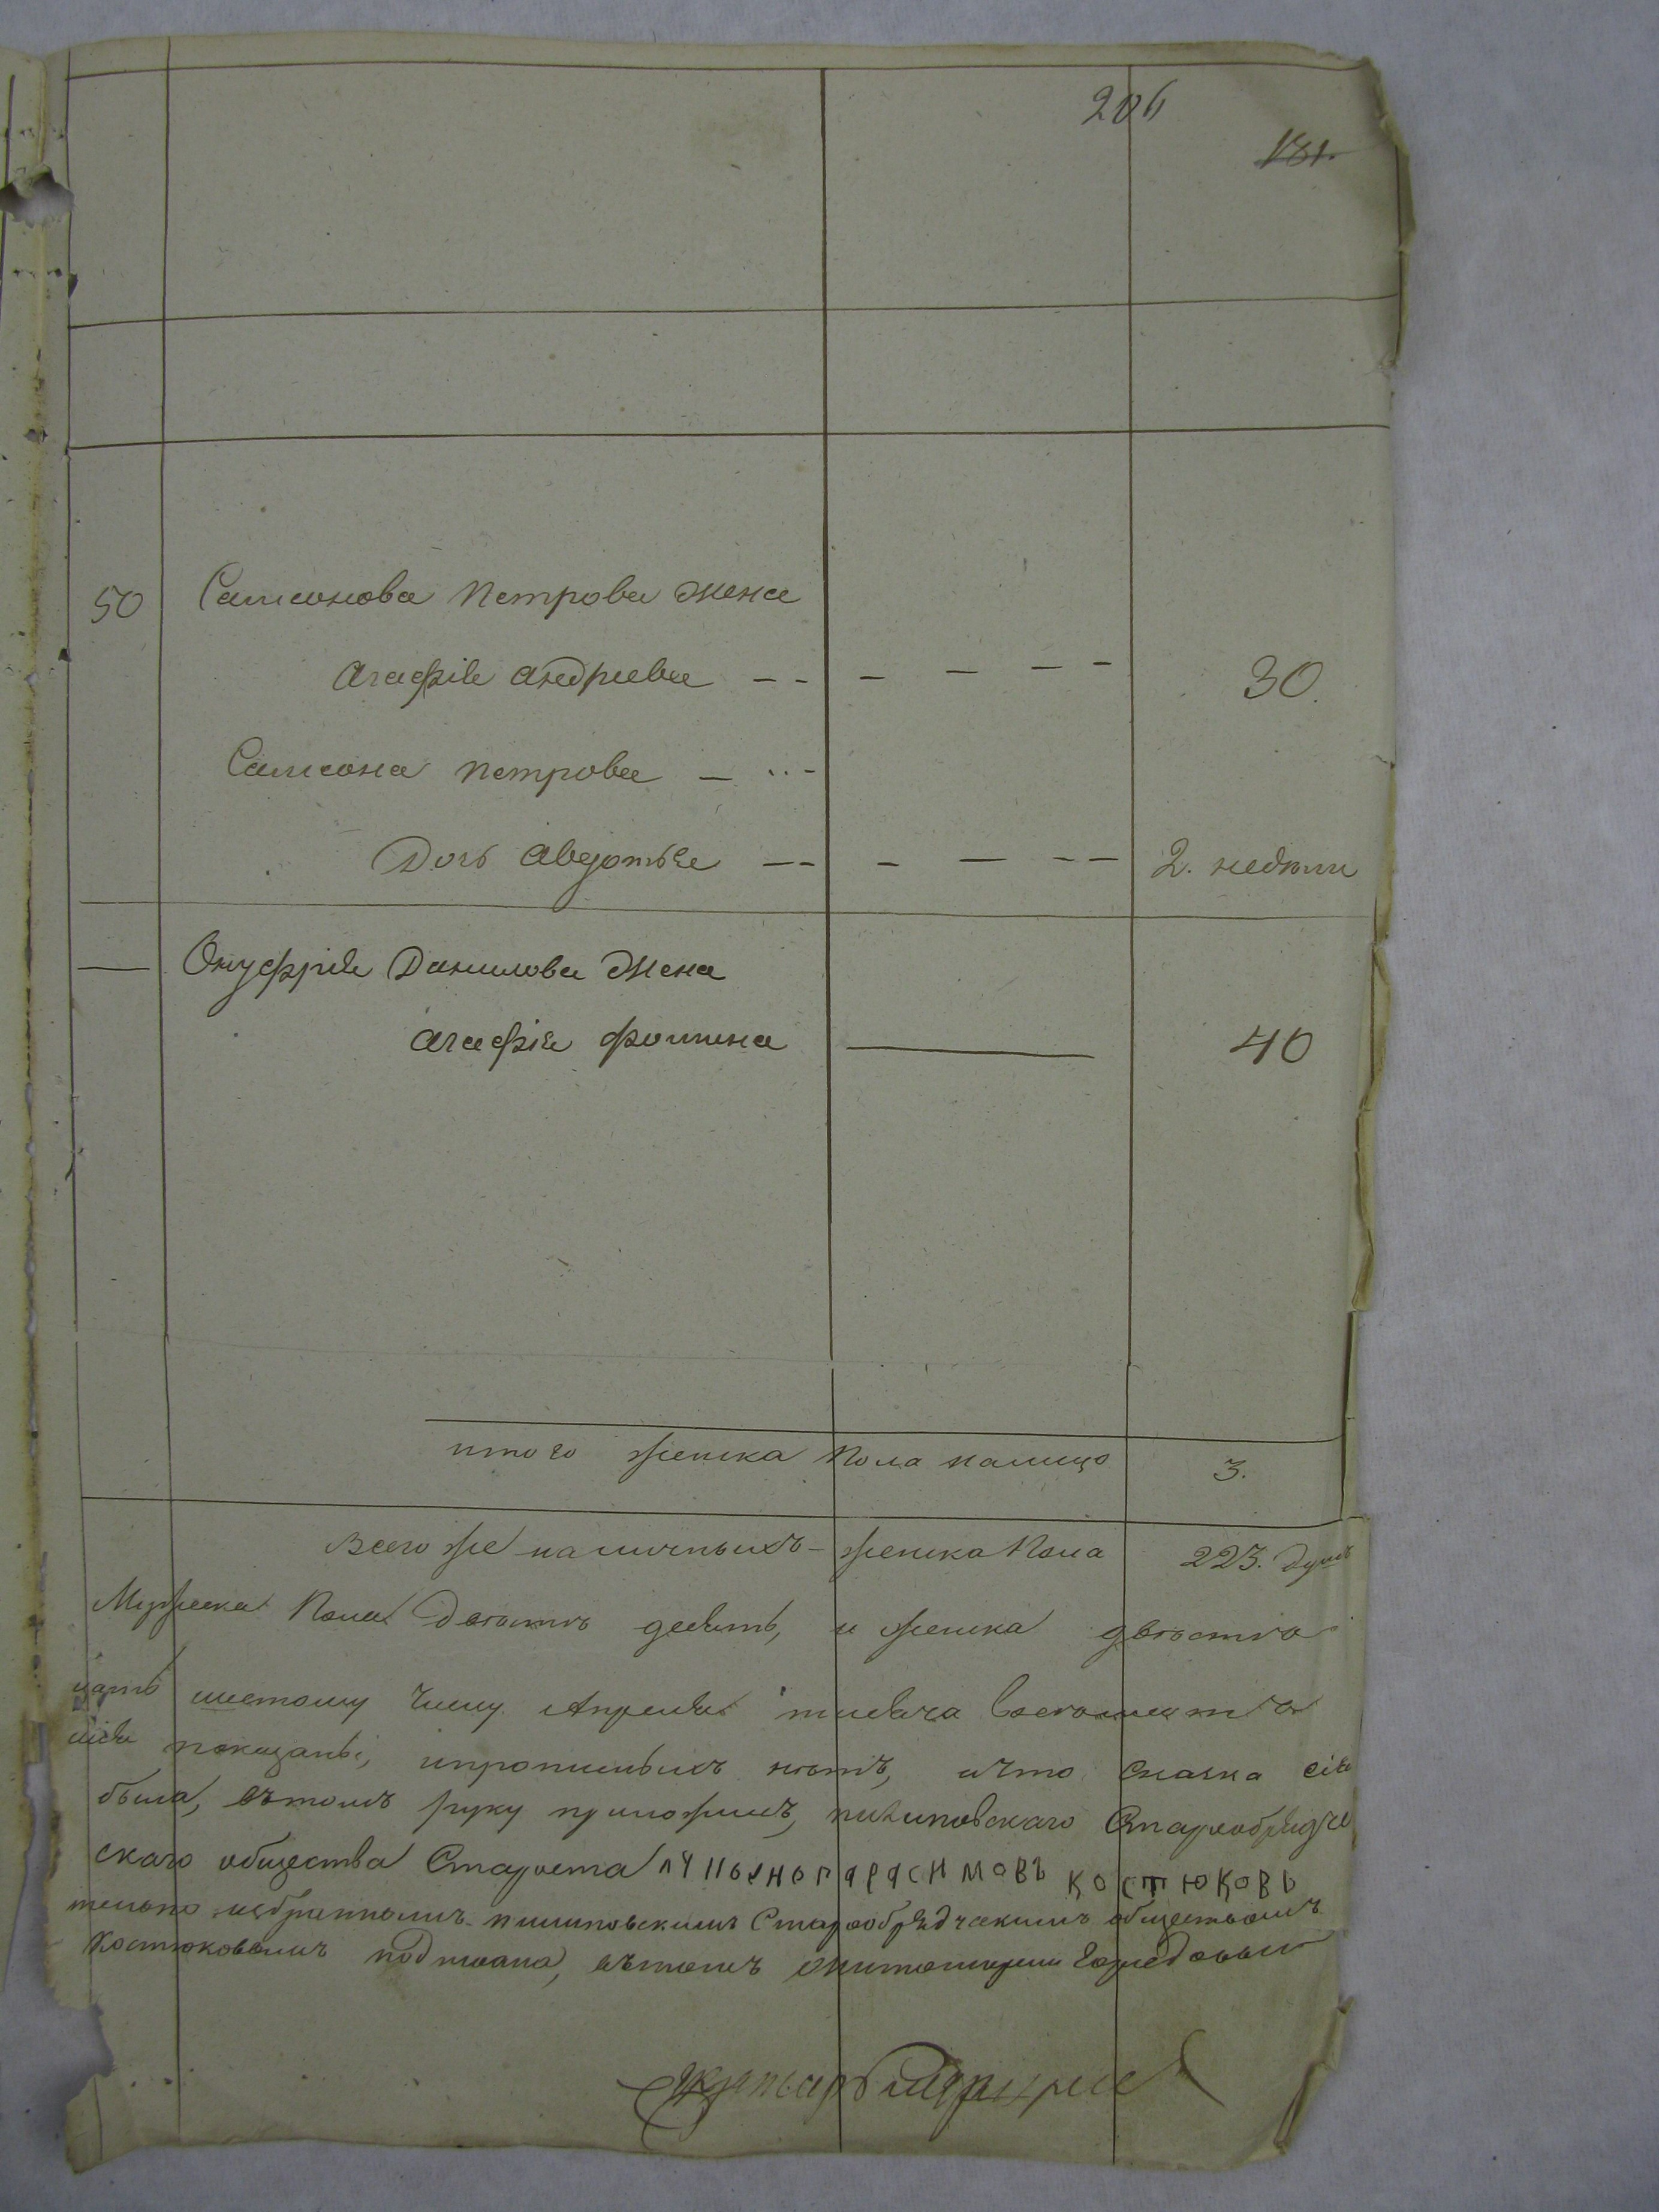 206
181.
50 Самсонова Петрова жена
Агафія Андриева - - - - - - 30.
Самсона Петрова - - -
Дочь Авдотья - - - - - - 2. недѣли
— Онуфрія Данилова жена
Агафія Фомина — 40
итого женска пола налицо 3.
Всего же наличныхъ женска пола 223. душъ
Мужеска пола двѣстѣ девять, и женска двѣстѣ
шестому числу Апреля тысяча
показаны, и прописныхъ нѣтъ, а что сказка сія
была, въ томъ руку приложилъ, пилиповскаго Старообрядче
скаго общества Староста Гарасимовъ Костюковъ
избраннымъ пилиповскимъ Старообрядческимъ обществомъ
Костюковымъ подписана, въ томъ